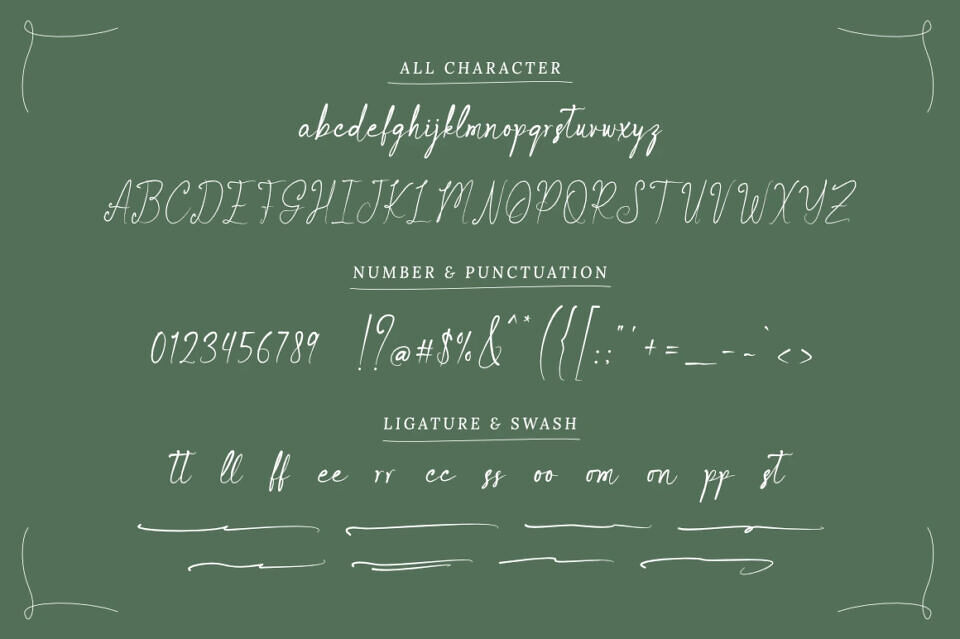 ALL CHARACTER
abcdefghijklmnopqrstuvwxyz
ABCDEFGHIJKLMNOPQRSTUVWXYZ
NUMBER & PUNCTUATION
0123456789 !?@#$%&^*({[:;"'+=_-~`<>
LIGATURE & SWASH
tt ll ff ee rr cc ss oo om on pp st